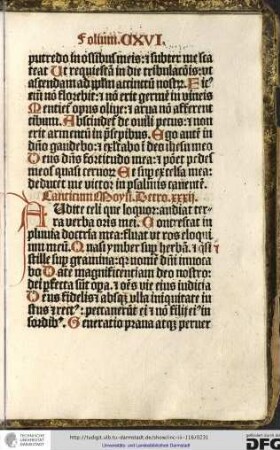 Folium. CXVI.
putredo in ossibus meis: ⁊ subter me sca
teat Ut requiescã in die tribulacõis: ut
ascendam ad ipm̃ accinctũ nostrũ. Fic⁹
em̃ nõ florebit: ⁊ nõ erit germẽ in vineis
Mentiet̃ opus oliue: ⁊ arua nõ afferent
cibum. Abscindet̃ de ouili pecus: ⁊ non
erit armentũ in p̃sepibus. Ego autẽ in
dño gaudebo: ⁊ exl'tabo ĩ deo ih̃esu meo
Deus dñs fortitudo mea: ⁊ põet pedes
meos quasi ceruor⁊ Et sup excelsa mea:
deducet me victor in psalmis canentẽ.
Canticum Moysi. Detro. xxxij.
Audite celi que loquor: audiat ter-
ra verba oris mei. Concrescat in
pluuia doctrĩa mea: fluat ut ros eloqui
um meũ. Quasi ymber sup herbã. ⁊ q̃si
stille sup gramina: q̃⁊ nomẽ dñi inuoca
bo Date magnificentiam deo nostro:
dei pf̃ecta sũt opa. ⁊ oẽs vie eius iudicia
Deus fidelis ⁊ absq⁊ ulla iniquitate iu
stus ⁊ rect⁹: peccauerũt ei ⁊ nõ filij ei⁹ in
sordib⁹. Generatio praua atq⁊ peruer
TECHNISCHE
UNIVERSITÄT
DARMSTADT
http://tudigit.ulb.tu-darmstadt.de/show/inc-iii-116/0231
Universitäts- und Landesbibliothek Darmstadt
gefördert durch die
DFG